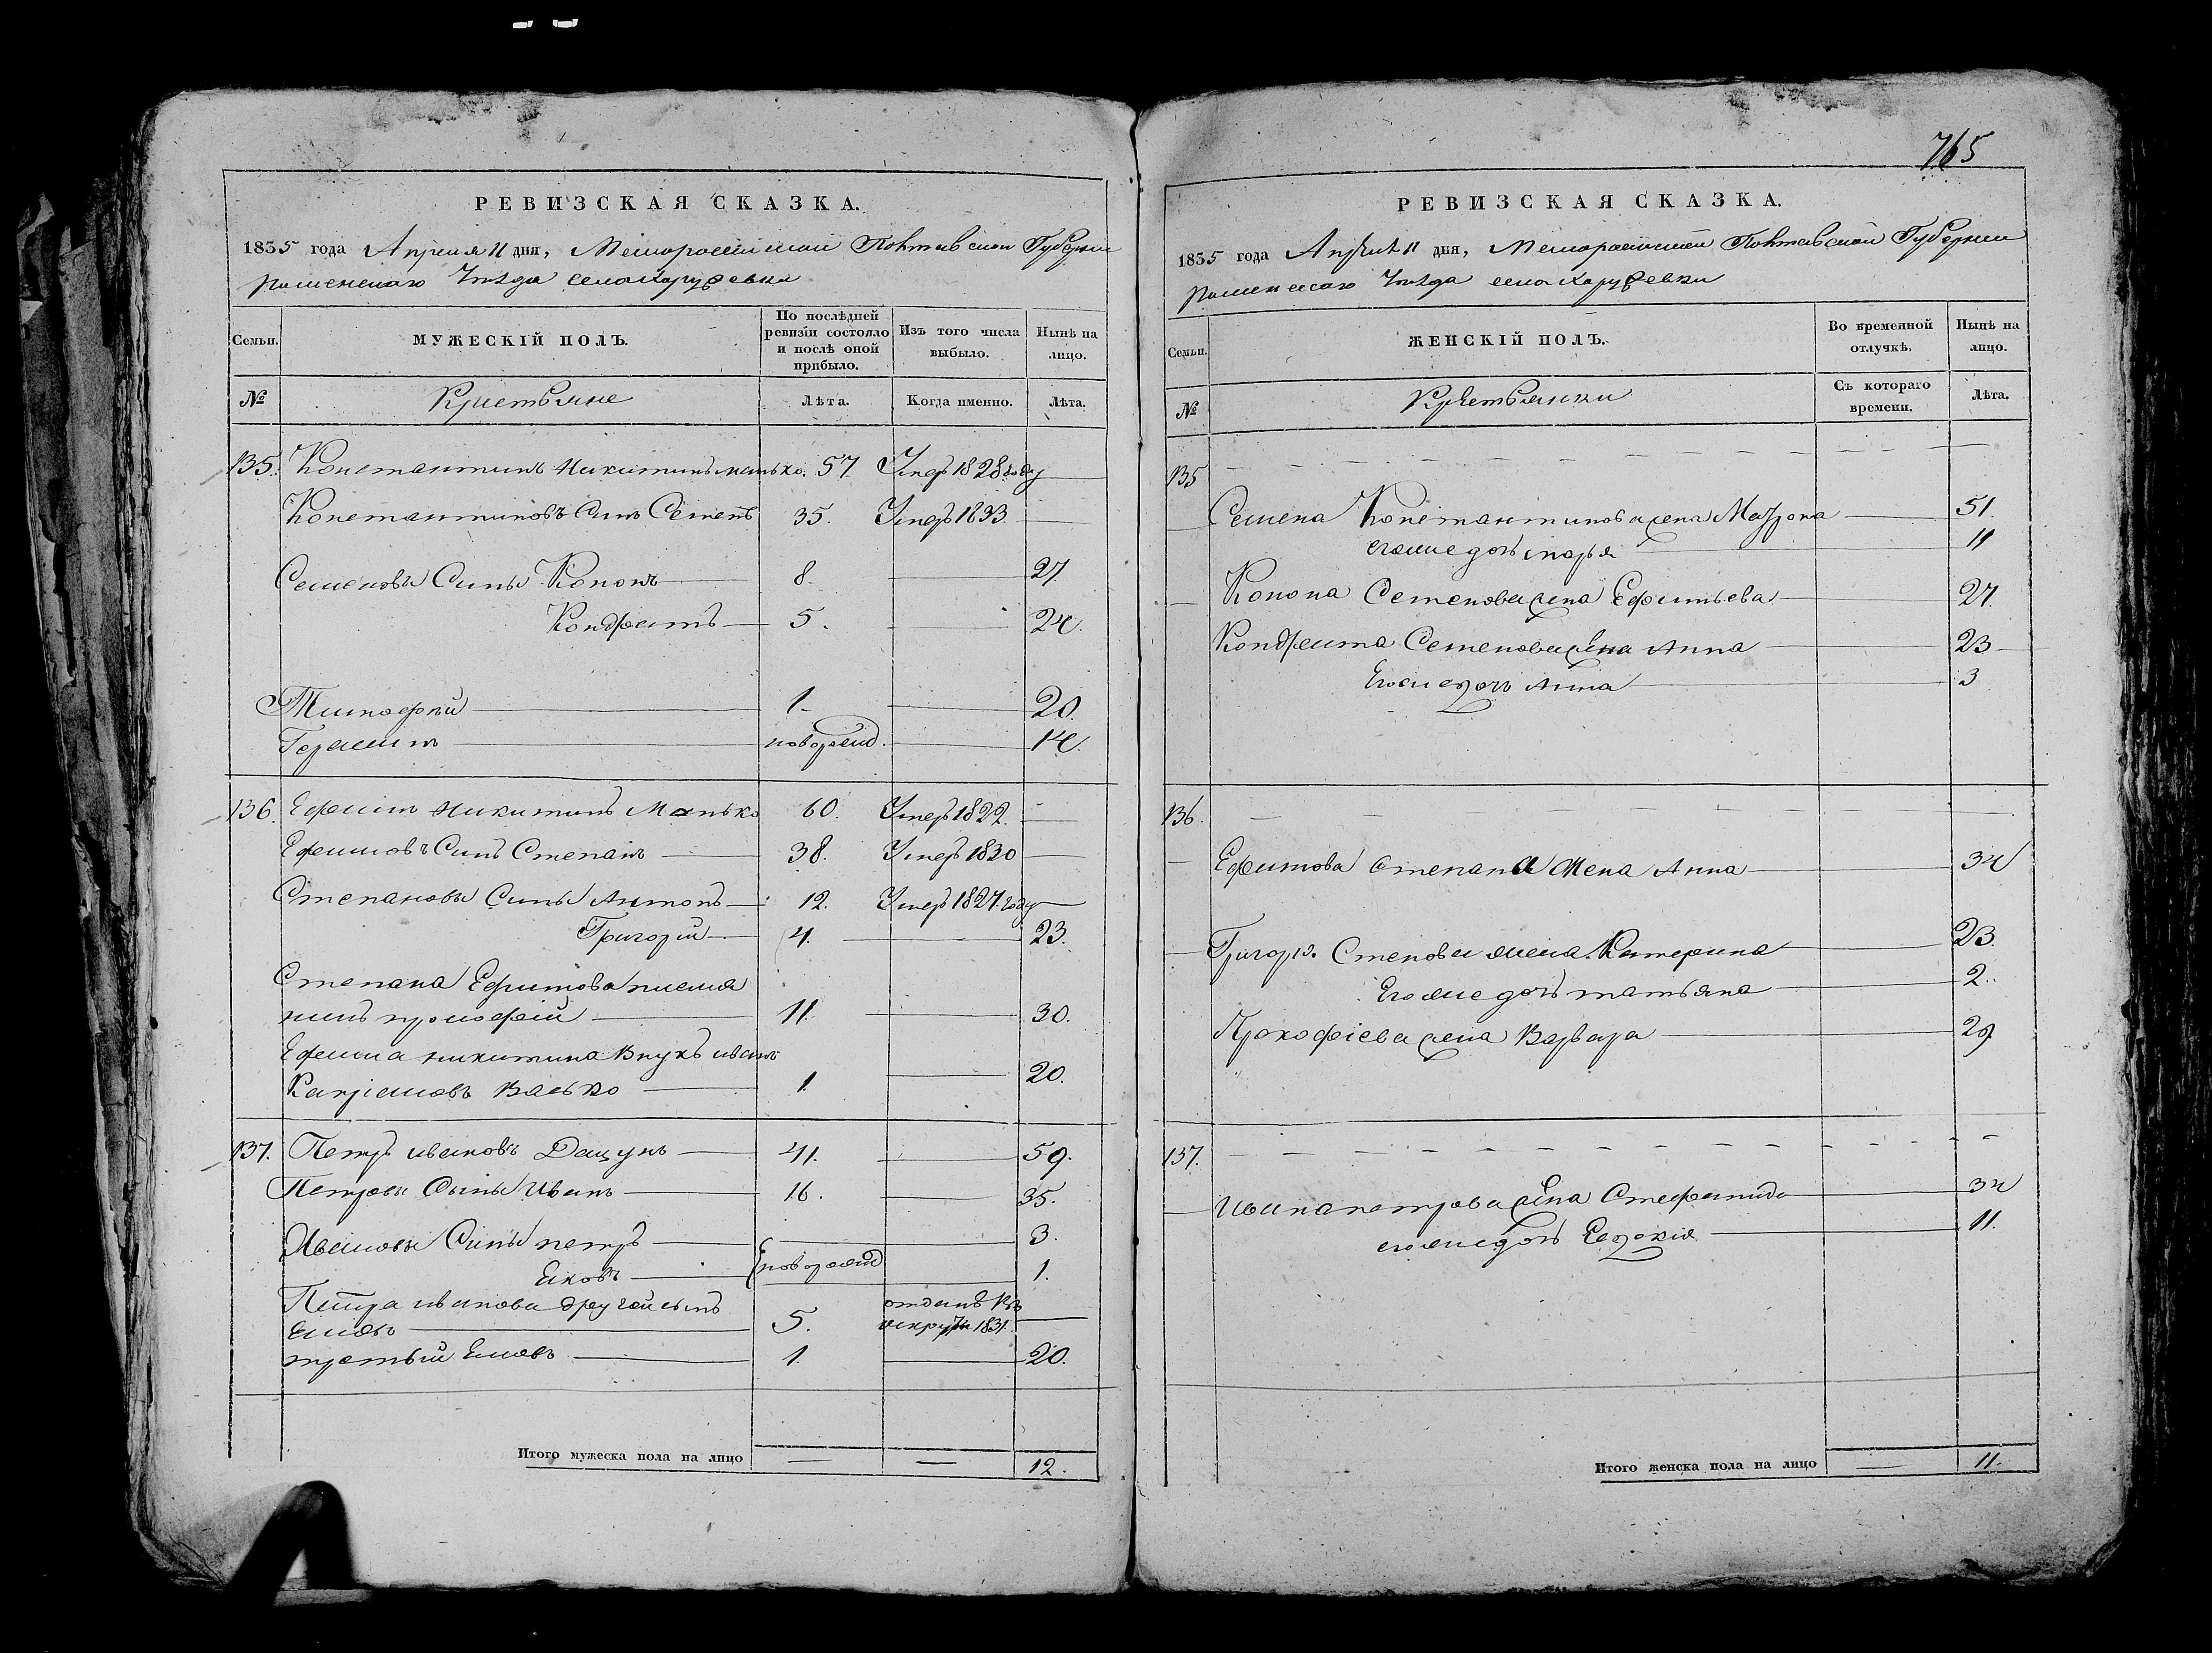 РЕВИЗСКАЯ СКАЗКА.
1835 года Апреля 11 дня, Малороссійской Полтавской Губерніи
Роменскаго Уезда села Харуфевки
Семьи.
МУЖЕСКІЙ ПОЛЪ.
По послѣдней ревизіи состояло и послѣ оной прибыло.
Изъ того числа выбыло.
Нынѣ на лицо.
№
Крестьяне
Лѣта.
Когда именно.
Лѣта.
135. Константинъ Никитинъ Манько. 57 Умеръ 1828 году
Константиновъ Синъ Семенъ 35. Умеръ 1833
Семеновы Сины Кононъ 8. 27
Кондратъ 5. 24.
Тимофей 1. 20.
Герасимъ новорожд. 14.
136. Ефимъ Никитинъ Манько 60. Умеръ 1822.
Ефимовъ Синъ Степанъ 38. Умеръ 1830
Степановы Сины Антонъ 12. Умеръ 1827. году
Григорій 4. 23.
Степана Ефимова племя
никъ прокофій 11. 30.
Ефима никитина Внукъ иванъ
Васько 1. 20.
137. Петръ ивановъ Дацунъ 41. 59.
Петровы Сыны Иванъ 16. 35.
Ивановы Сины петръ 3.
Яковъ новорожд 1.
Петра иванова другой сынъ
Яковъ 5. отданъ въ рекруты 1831.
третьій Яковъ 1. 20.
Итого мужеска пола на лицо — — 12.
765
РЕВИЗСКАЯ СКАЗКА.
1835 года Апреля 11 дня, Малороссійской Полтавской Губерніи
Роменскаго Уезда села Харуфевки
Семьи.
ЖЕНСКІЙ ПОЛЪ.
Во временной отлучкѣ.
Нынѣ на лицо.
№
Крестьянки
Съ котораго времени.
Лѣта.
135
Семена Константинова жена Матрона 51.
егоже дочь марья 11
Конона Семенова жена Ефимьева 27.
Кондрата Семенова жена Анна 23
Егоже дочь Анна 3
136.
Ефимова Степана Жена Анна 34
Григорія Степова жена Катерина 23.
Егоже дочь татьяна 2.
Прокофіева жена Варвара 29
137.
Ивана петрова жена Стефанида 34
егоже дочь Евдокія 11.
Итого женска пола на лицо — 11.